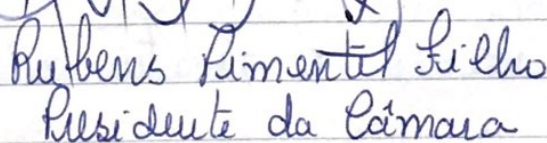 Rubens Pimentel Filho
Presidente da Câmara